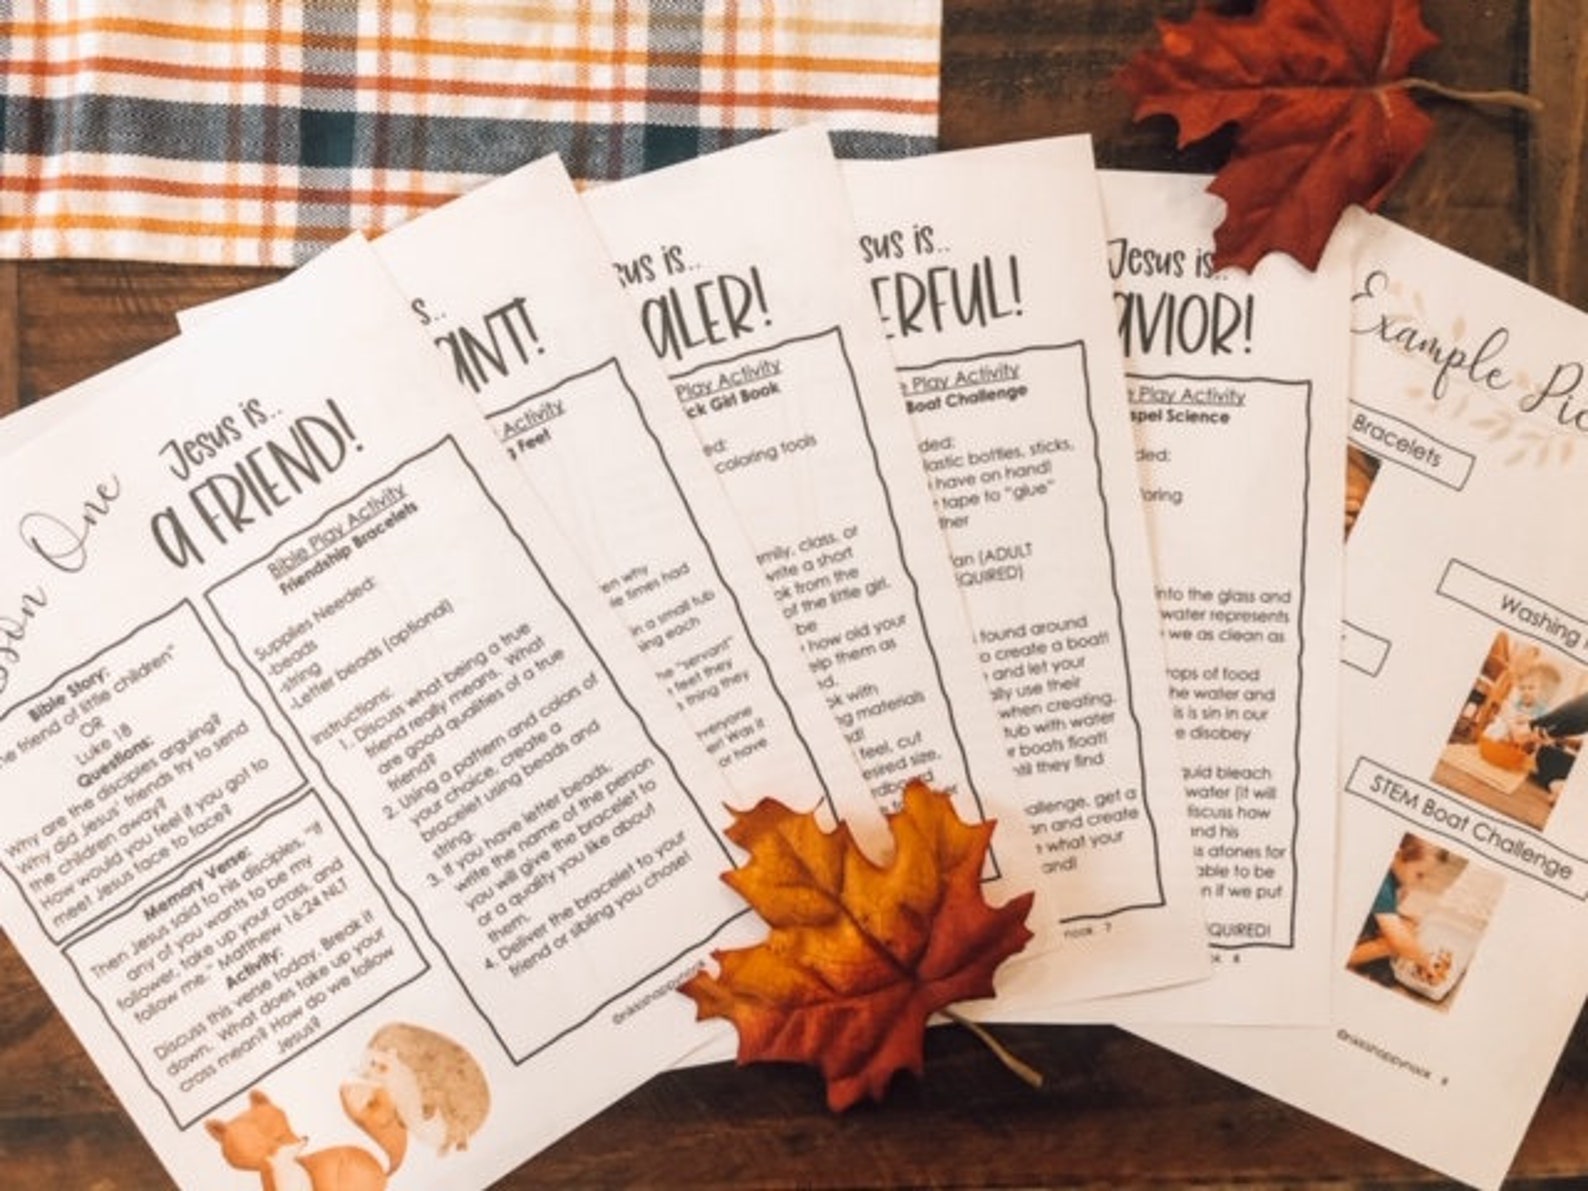 One
Jesus is..
a FRIEND!
Bible Story:
friend of little children"
OR
Luke 18
Questions:
Why are the disciples arguing?
Why did Jesus' friends try to send
the children away?
How would you feel if you got to
meet Jesus face to face?
Memory Verse:
Then Jesus said to his disciples, "If
any of you wants to be my
follower, take up your cross, and
follow me." Matthew 16:24 NLT
Activity:
Discuss this verse today. Break it
down. What does take up your
cross mean? How do we follow
Jesus?
Bible Play Activity
Friendship Bracelets
Supplies Needed:
-beads
-string
-Letter beads (optional)
Instructions:
1. Discuss what being a true
friend really means. What
are good qualities of a true
friend?
2. Using a pattern and colors of
your choice, create a
bracelet using beads and
string.
3. If you have letter beads,
write the name of the person
you will give the bracelet to
or a quality you like about
them.
4. Deliver the bracelet to your
friend or sibling you chose!
s..
ANT!
Activity
Feet
en why
times had
in a small tub
ing each
he "servant"
feel they
thing they
everyone
Was it
or have
us is..
ALER!
Play Activity
ck Girl Book
ed:
coloring tools
mily, class, or
write a short
ok from the
of the little girl.
be
how old your
elp them as
d.
ok with
ng materials
nd!
feel, cut
esired size.
sus is..
ERFUL!
Play Activity
Boat Challenge
ded:
lastic bottles, sticks,
have on hand!
tape to "glue"
ther
an (ADULT
EQUIRED)
found around
o create a boat!
and let your
ally use their
when creating.
tub with water
r boats float!
till they find
allenge, get a
an and create
what your
and!
nook 7
Jesus is..
AVIOR!
Play Activity
spel Science
ded:
oring
into the glass and
water represents
we as clean as
rops of food
he water and
is is sin in our
e disobey
quid bleach
water (it will
iscuss how
and his
s atones for
able to be
n if we put
QUIRED!
8
Example Pic
Bracelets
Washing
STEM Boat Challenge
@nikkishappynook 9